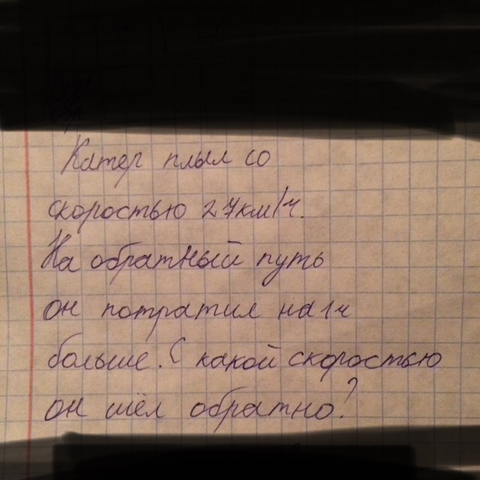 Катер плыл со
скоростью 27км/ч.
На обратный путь
он потратил на 1ч
больше. С какой скоростью
он шёл обратно?